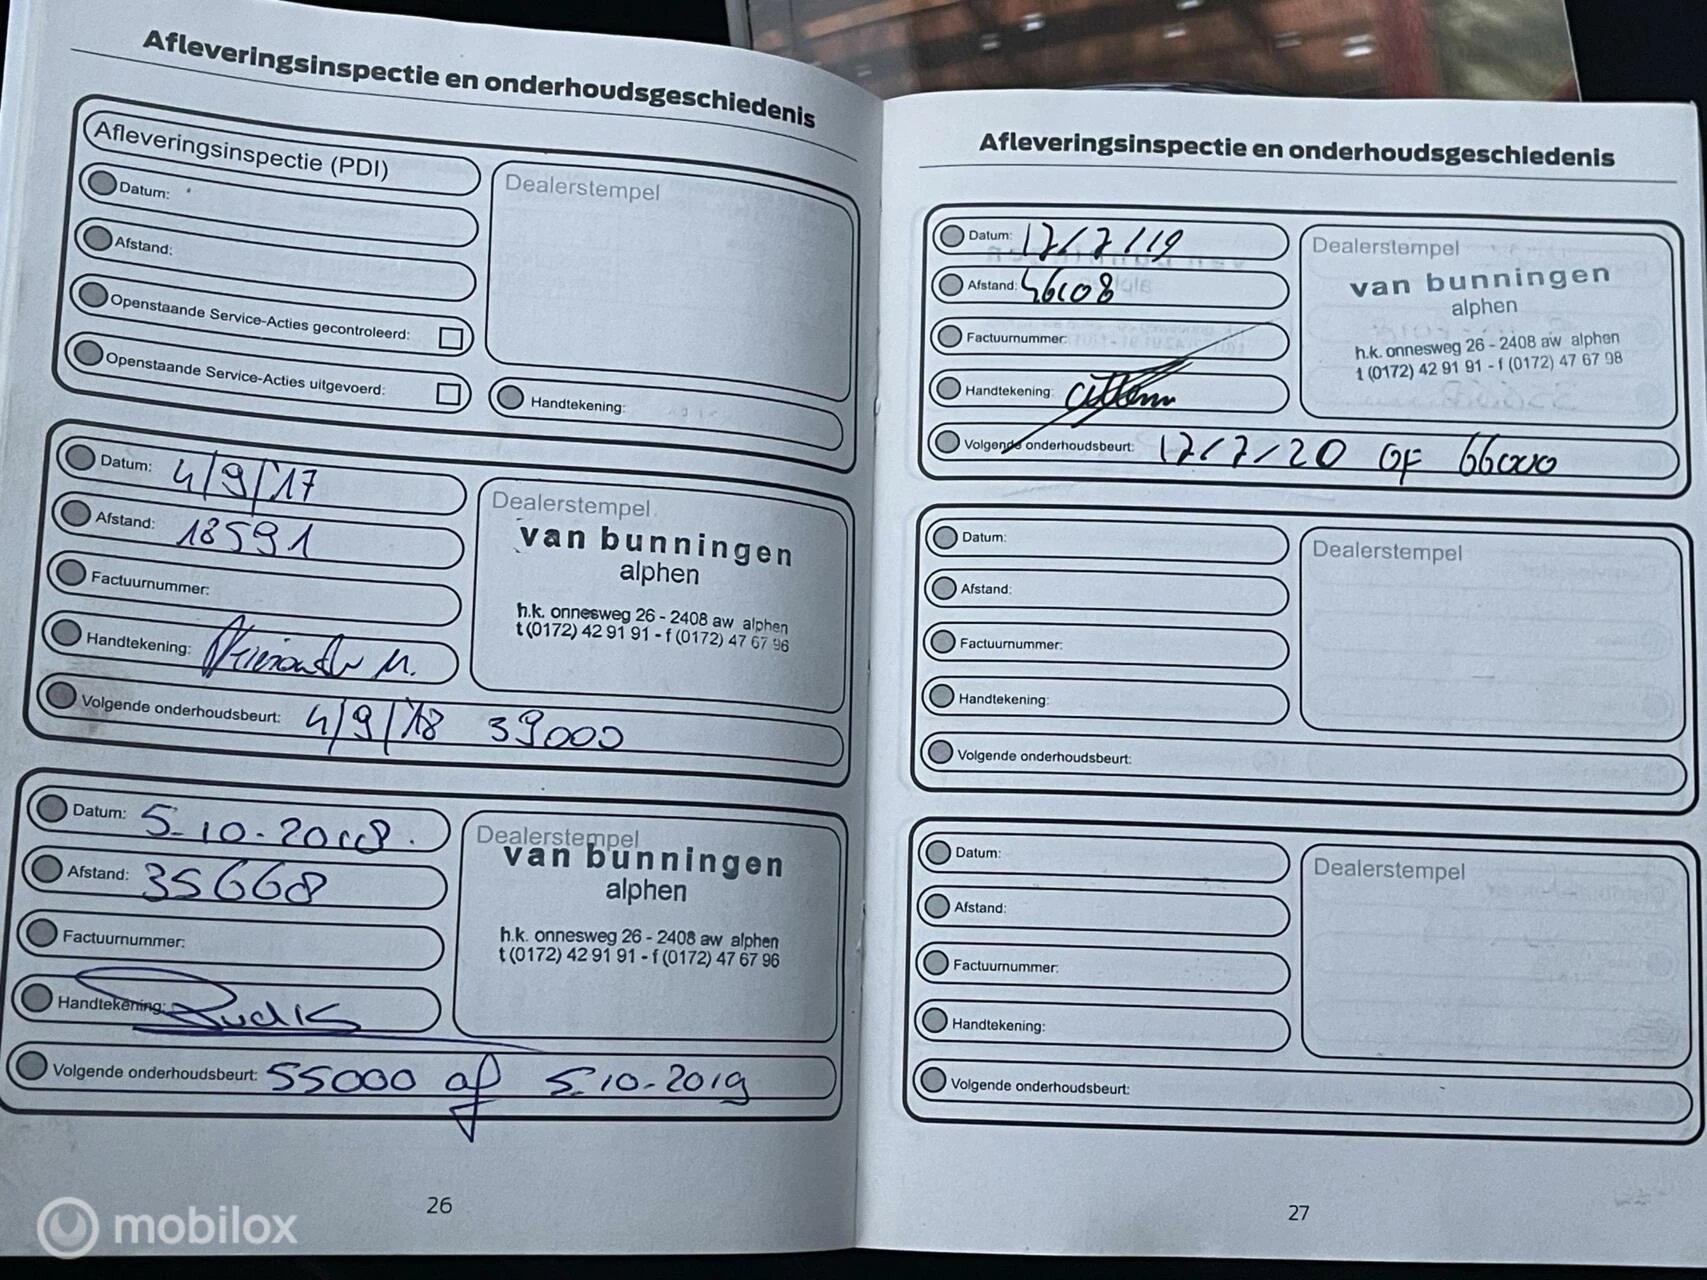 Afleveringsinspectie en onderhoudsgeschiedenis
Afleveringsinspectie (PDI)
Datum:
Afstand:
Openstaande Service-Acties gecontroleerd:
Openstaande Service-Acties uitgevoerd:
Dealerstempel
Handtekening:
Datum: 4/9/'17
Afstand: 18591
Factuurnummer:
Handtekening:
Volgende onderhoudsbeurt: 4/9/'18 39000
Dealerstempel
van bunningen
alphen
h.k. onnesweg 26 - 2408 aw alphen
t (0172) 42 91 91 - f (0172) 47 67 96
Datum: 5-10-2018.
Afstand: 35668
Factuurnummer:
Handtekening:
Volgende onderhoudsbeurt: 55000 of 5-10-2019
Dealerstempel
van bunningen
alphen
h.k. onnesweg 26 - 2408 aw alphen
t (0172) 42 91 91 - f (0172) 47 67 96
26
mobilox
Afleveringsinspectie en onderhoudsgeschiedenis
Datum: 17/7/19
Afstand: 46108
Factuurnummer:
Handtekening:
Volgende onderhoudsbeurt: 17/7/20 OF 66000
Dealerstempel
van bunningen
alphen
h.k. onnesweg 26 - 2408 aw alphen
t (0172) 42 91 91 - f (0172) 47 67 98
Datum:
Afstand:
Factuurnummer:
Handtekening:
Volgende onderhoudsbeurt:
Dealerstempel
Datum:
Afstand:
Factuurnummer:
Handtekening:
Volgende onderhoudsbeurt:
Dealerstempel
27